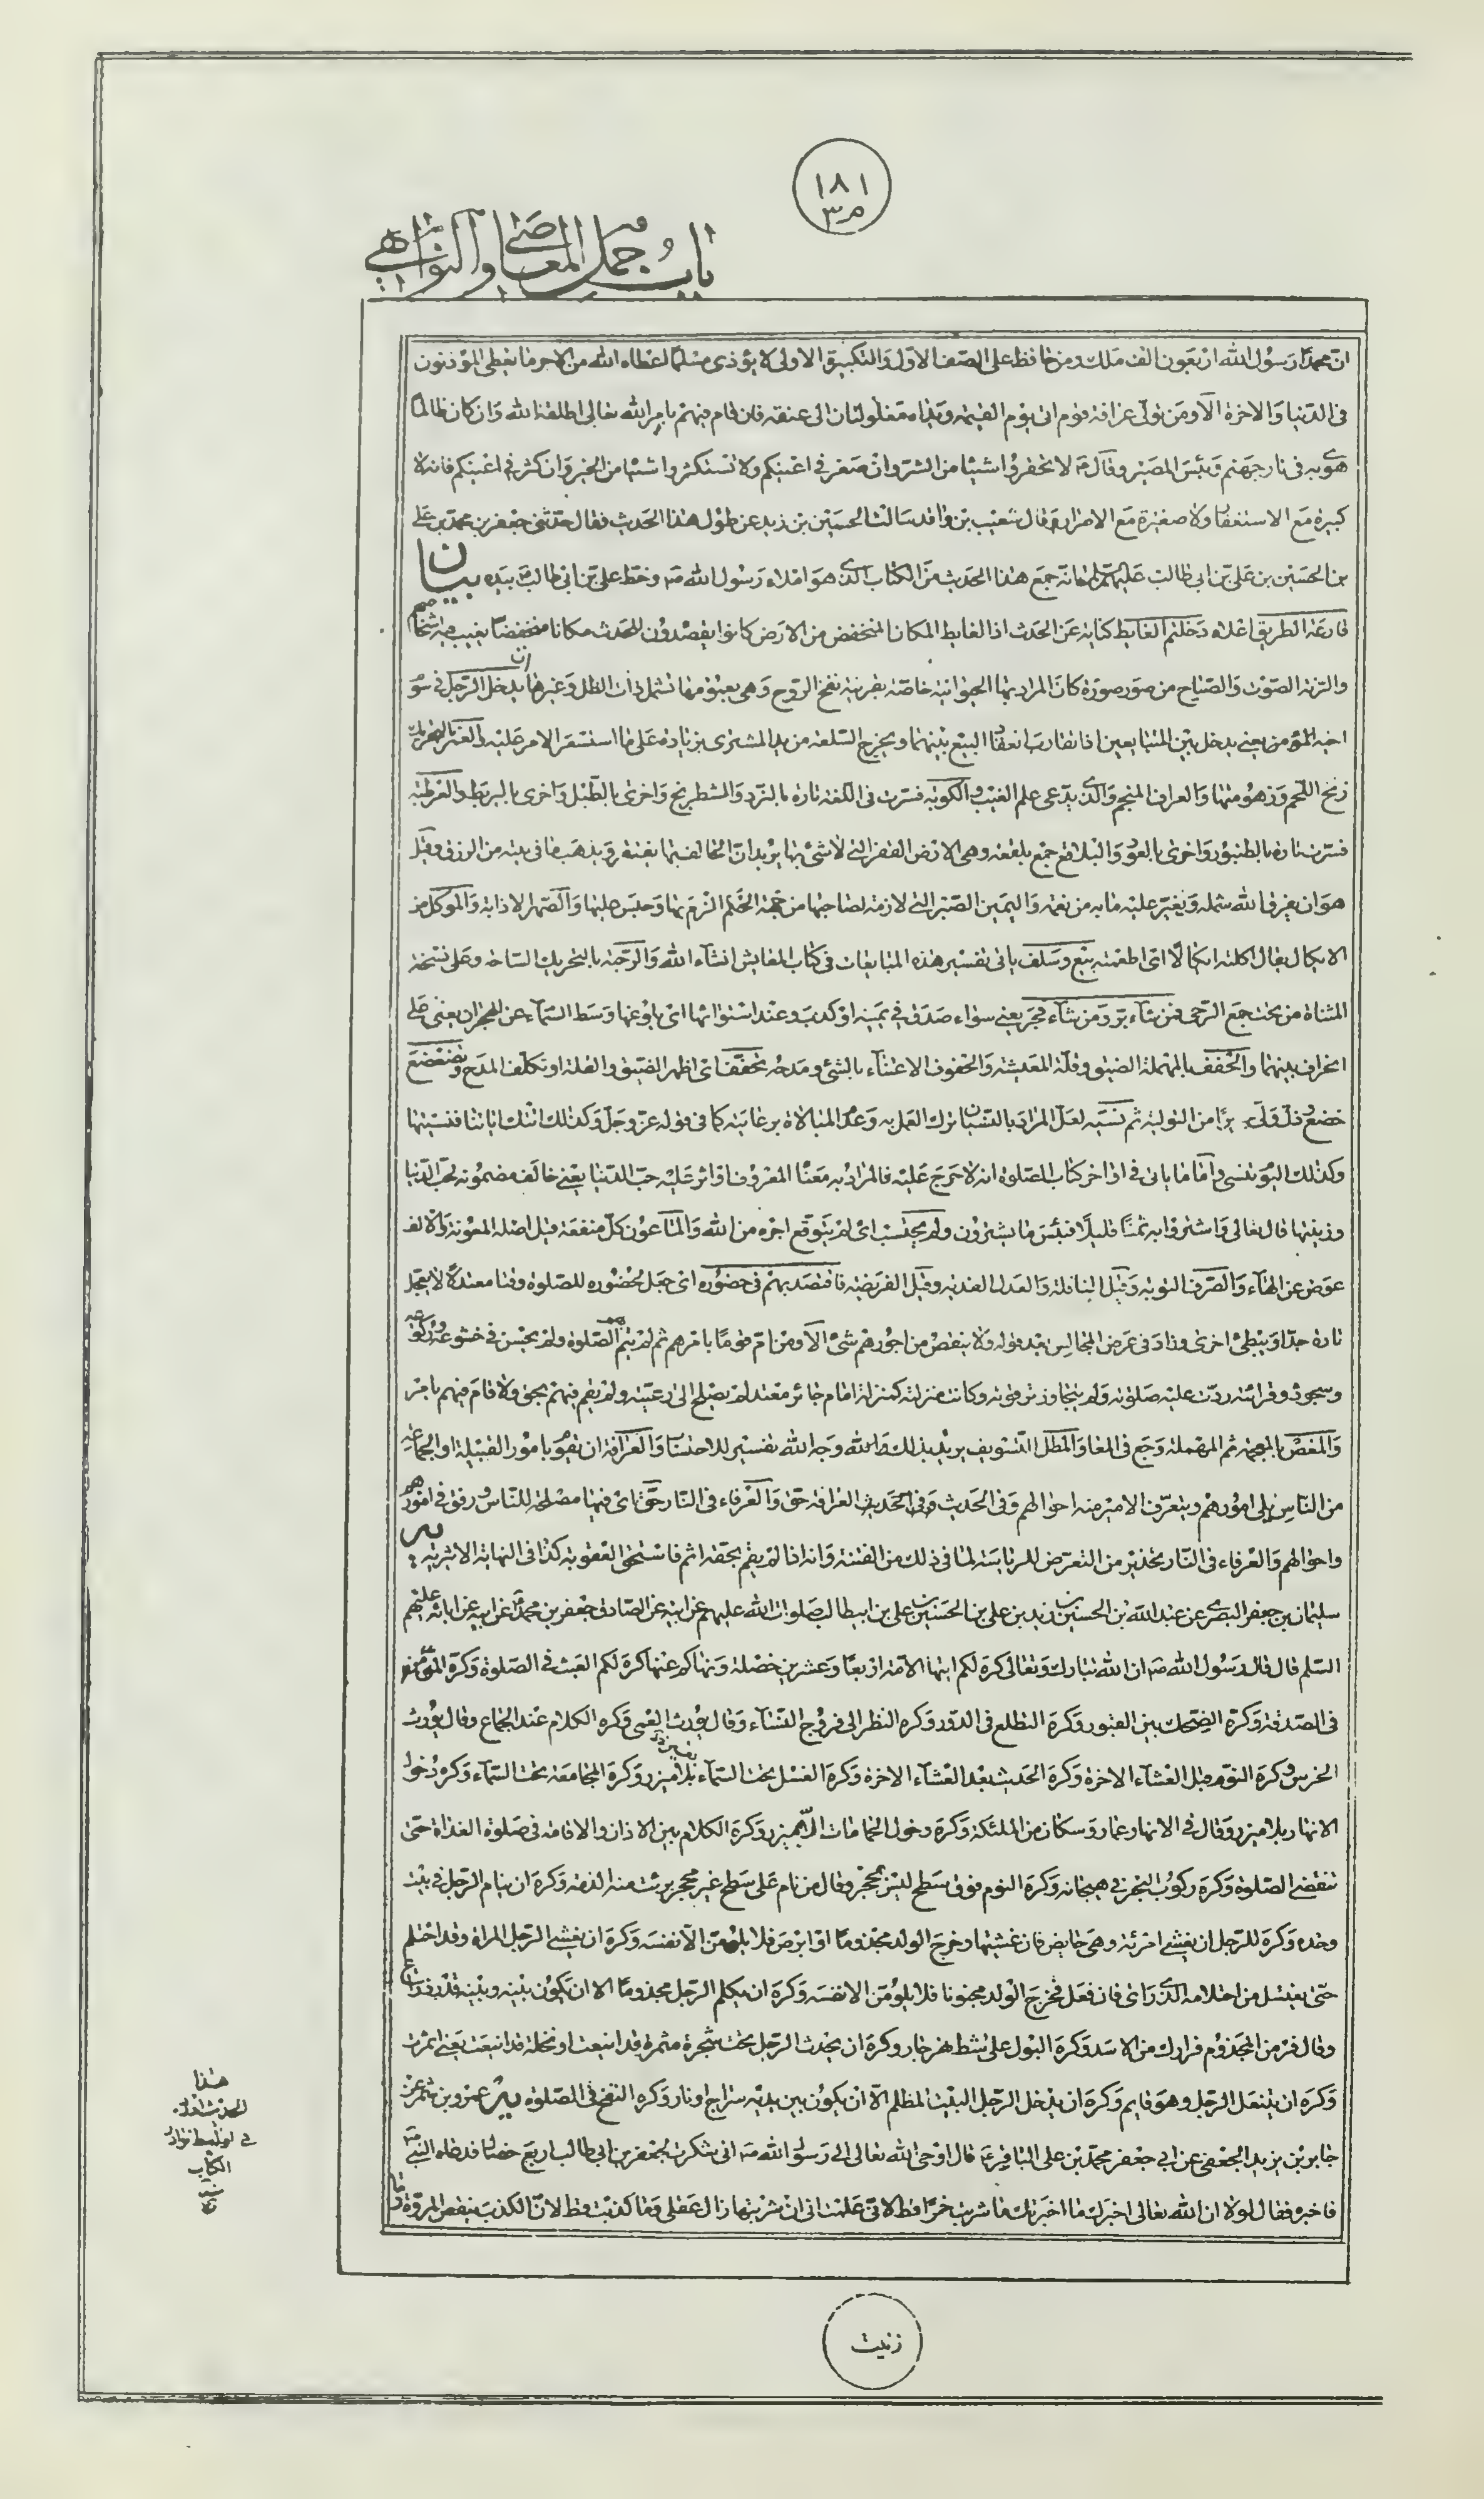 ١٨١
م٣
باب جمل المعاصي والنواهي
ان محمدا رسول الله اربعون الف ملك ومن حافظ على الصف الاول والتكبيرة الاولى لا يؤذى مسلما اعطاه الله من الاجر ما يعطى المؤذنون
في الدنيا والاخرة الا ومن تولى عرافة قوم اتى يوم القيمة ويداه مغلولتان الى عنقه فان قام فيهم بامر الله تعالى اطلقه الله وان كان ظالما
هوى به في نار جهنم وبئس المصير وقال ص لا تحقروا شيئا من الشر وان صغر في اعينكم ولا تستكثروا شيئا من الخير وان كثر في اعينكم فانه لا
كبيرة مع الاستغفار ولا صغيرة مع الاصرار وقال شعيب بن واقد سالت الحسين بن زيد عن طول هذا الحديث فقال حدثني جعفر بن محمد بن على
بن الحسين بن على بن ابي طالب عليهم السلم انه جمع هذا الحديث من الكتاب الذى هو املاء رسول الله ص وخط على بن ابي طالب بيده بيان
قارعة الطريق اعلاه دخلتم الغايط كناية عن الحدث اذ الغايط المكان المنخفض من الارض كانوا يقصدون للحدث مكانا منخفضا يغيب فيه اشخاصهم
والرنة الصوت والصياح من صور صورة كان المراد بها الحيوانية خاصة بقرينة نفخ الروح وهي بعينها تشمل ذات الظل وغيرها ان يدخل الرجل في سوم
اخيه المؤمن يعني يدخل بين المتبايعين اذا تقارب انعقاد البيع بينهما ويخرج السلعة من يد المشترى بزيادة على ما استقر الامر عليه والغمر بالتحريك
زنخ اللحم وزهومتها والعراف المنجم والذى يدعى علم الغيب والكوبة فسرت في اللغة تارة بالنرد والشطرنج واخرى بالطبل واخرى بالبربط والعرطبة
فسرت تارة بالطنبور واخرى بالعود والبلاقع جمع بلقعة وهي الارض القفر التي لا شئ بها يريد ان الحالف بها يفتقر ويذهب ما في بيته من الرزق وقيل
هو ان يفرق الله شمله ويغير عليه ما به من نعمه واليمين الصبر التي لازمة لصاحبها من جهة الحكم الزم بها وحبس عليها والصهر الاذابة والموكل من
الايكال يقال اكلته ايكالا اى اطعمته بيع وسلف ياتى تفسير هذه المبايعات في كتاب المعايش انشاء الله والرحبة بالتحريك الساحة وعلى نسخة
المثناة من تحت جمع الرحى فمن شاء بر ومن شاء فجر يعني سواء صدق في يمينه او كذب وعند استوائها اى بلوغها وسط السماء عن المحجران يعني على
انحراف بينهما والحفف بالمهملة الضيق وقلة المعيشة والحفوف الاعتناء بالشئ ومدحه تحفف اى اظهر الضيق والقلة او تكلف المدح وتضعضع
خضع وذل ولى برا من التولية ثم نسيه لعل المراد بالنسيان ترك العمل به وعدم المبالاة برعايته كما في قوله عز وجل وكذلك اتتك اياتنا فنسيتها
وكذلك اليوم تنسى واما ما ياتى في اواخر كتاب الصلوة انه لا حرج عليه فالمراد به معناه المعروف اواثر عليه حب الدنيا يعنى خالف مضمونه لحب الدنيا
وزينتها قال تعالى واشتروا به ثمنا قليلا فبئس ما يشترون ولم يحتسب اى لم يتوقع اجره من الله والماعون كل منفعة قيل اصله المعونة والالف
عوض عن الهاء والصرف التوبة وقيل النافلة والعدل الفدية وقيل الفريضة فاقتصد بهم في حضوره اى جعل حضوره للصلوة وقتا معتدلا لا يعجل
تارة جدا ويبطئ اخرى وزاد في عرض المجالس بعد قوله ولا ينقص من اجورهم شئ الا ومن ام قوما بامرهم ثم لم يتم بهم الصلوة ولم يحسن في خشوعه وركوعه
وسجوده وقرائته ردت عليه صلوته ولم يتجاوز ترقوته وكانت منزلته كمنزلة امام جائر معتد لم يصلح الى رعيته ولم يقم فيهم بحق ولا قام فيهم بامر
والمغص بالمعجمة ثم المهملة وجع في المعا والمطل التسويف يريد بذلك والله وجه الله تفسير للاحتساب والعرافة ان يقوم بامور القبيلة او الجماعة
من الناس يلى امورهم ويتعرف الامير منه احوالهم وفي الحديث وفي الحديث العرافة حق والعرفاء في النار حق اى فيها مصلحة للناس ورفق في امورهم
واحوالهم والعرفاء في النار تحذير من التعرض للرياسة لما في ذلك من الفتنة وانه اذا لم يقم بحقه اثم فاستحق العقوبة كذا في النهاية الاثيرية يه
سليمان بن جعفر البصرى عن عبد الله بن الحسين بن زيد بن على بن الحسين بن على بن ابيطالب صلوات الله عليهم عن ابيه عن الصادق جعفر بن محمد عن ابيه عن ابائه عليهم
السلم قال قال رسول الله ص ان الله تبارك وتعالى كره لكم ايتها الامة اربعا وعشرين خصلة ونهاكم عنها كره لكم العبث في الصلوة وكره المن
في الصدقة وكره الضحك بين القبور وكره التطلع في الدور وكره النظر الى فروج النساء وقال يورث العمى وكره الكلام عند الجماع وقال يورث
الخرس وكره النوم قبل العشاء الاخرة وكره الحديث بعد العشاء الاخرة وكره الغسل تحت السماء بغير ميزر وكره المجامعة تحت السماء وكره دخول
الانهار بلا ميزر وقال في الانهار عمار وسكان من الملئكة وكره دخول الحمامات الا بميزر وكره الكلام بين الاذان والاقامة في صلوة الغداة حتى
تنقضى الصلوة وكره ركوب البحر في هيجانه وكره النوم فوق سطح ليس بمحجر وقال من نام على سطح غير محجر برئت منه الذمة وكره ان ينام الرجل في بيت
وحده وكره للرجل ان يغشى امرئته وهي حايض فان غشيها وخرج الولد مجذوما او ابرص فلا يلومن الا نفسه وكره ان يغشى الرجل المراة وقد احتلم
حتى يغتسل من احتلامه الذى راى فان فعل فخرج الولد مجنونا فلا يلومن الا نفسه وكره ان يكلم الرجل مجذوما الا ان يكون بينه وبينه قدر ذراع
وقال فر من المجذوم فرارك من الاسد وكره البول على شط نهر جار وكره ان يحدث الرجل تحت شجرة مثمرة قد اينعت او نخلة قد اينعت يعني اثمرت
وكره ان يتنعل الرجل وهو قايم وكره ان يدخل الرجل البيت المظلم الا ان يكون بين يديه سراج او نار وكره النفخ في الصلوة يه عمرو بن شمر عن
جابر بن يزيد الجعفى عن ابي جعفر محمد بن على الباقر ع قال اوحى الله تعالى الى رسول الله ص انى شكرت لجعفر بن ابي طالب اربع خصال فدعاه النبي ص
فاخبره فقال لولا ان الله تعالى اخبرك ما اخبرتك ما شربت خمرا قط لانى علمت انى ان شربتها زال عقلى وما كذبت قط لان الكذب ينقص المروة وما
هذا
الحديث
الكتاب
زنيت